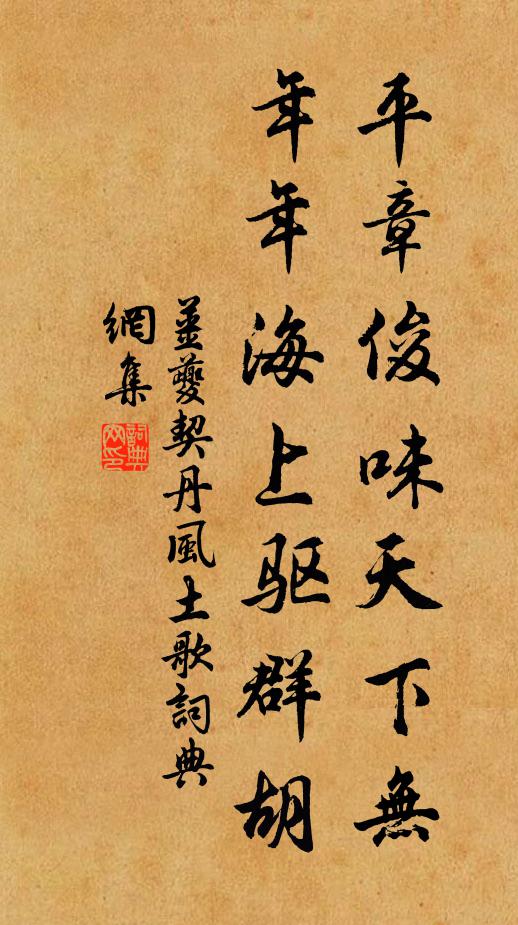 平章俊味天下無
年年海上驱群胡
姜夔契丹風土歌詞典
網集
詞典網印